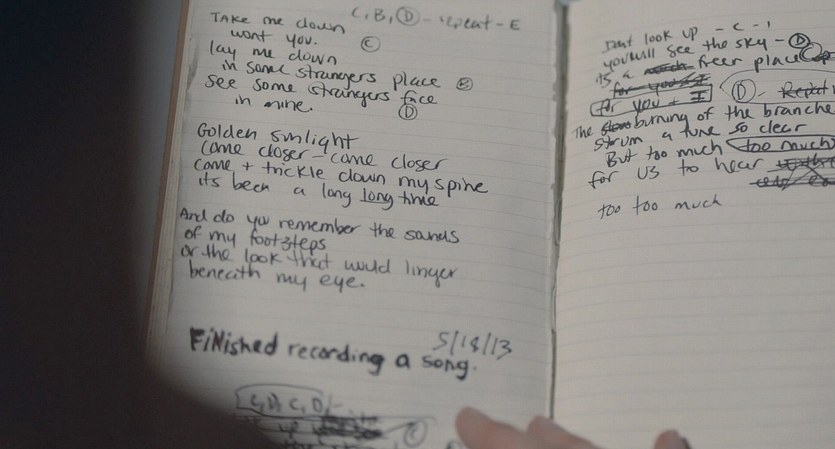 C, B, D - repeat - E
Take me down
want you.
C
lay me down
in some strangers place E
see some strangers face
in mine. D
Golden sunlight
come closer - come closer
come + trickle down my spine
its been a long long time
And do you remember the sands
of my footsteps
or the look that would linger
beneath my eye.
5/18/13
Finished recording a song.
C, D, C, D
C
Just look up - C -
you will see the sky - D
its a freer place
for you + I
D - Repeat
The burning of the branche
strum a tune so clear
But too much too much
for us to hear
too too much